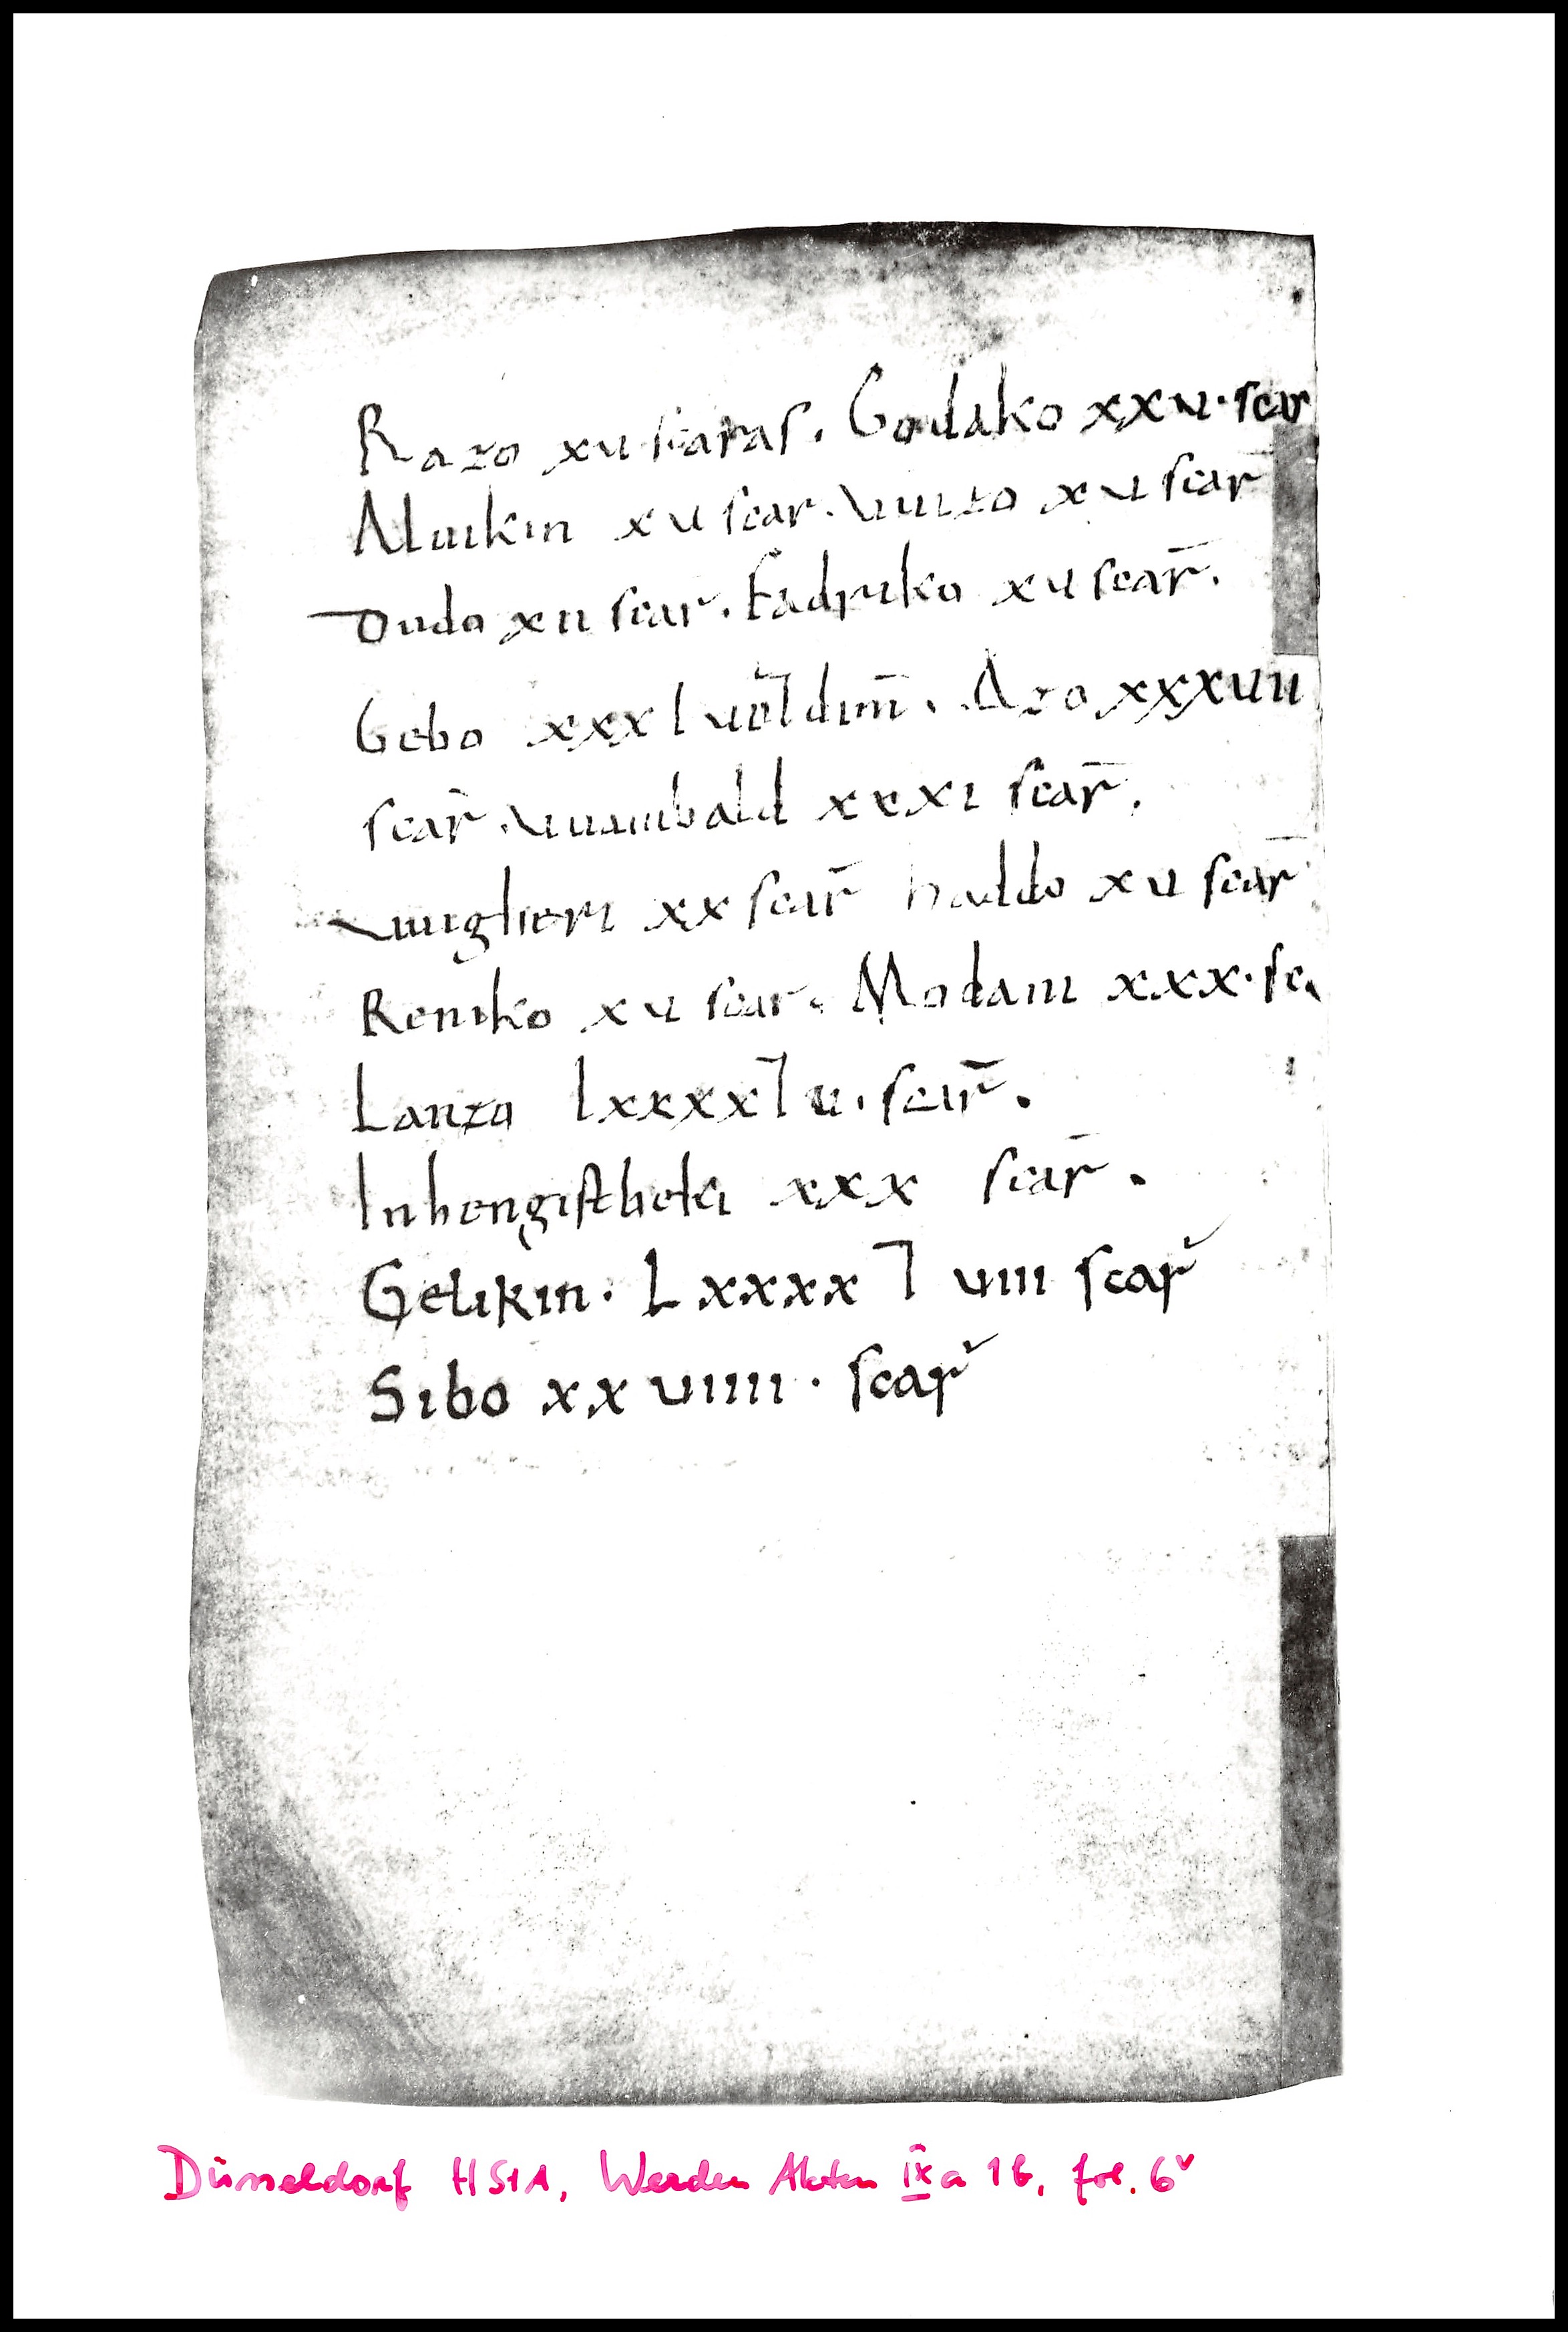 Razo xu ſcaraſ. Godako xxu·ſcar
Aluikin xu ſcar. Uuizo xu ſcar̄
Dudo xu ſcar. Fadriko xu ſcar̄.
Gebo xxx ⁊ dim̄. Azo xxxuii
ſcar̄. xxxi ſcar̄.
Uuigheri xx ſcar̄ haddo xu ſcar̄
Reniko xu ſcar. Modaui xxx·
Lanzo lxxxx⁊u. ſcar̄.
Inhengiſtbeki xxx ſcar̄.
Gelikin. Lxxxx ⁊ uiii ſcar̄
Sibo xxuiiii · ſcar̄
Düsseldorf HStA, Werden Akten IX a 1b, fol. 6v